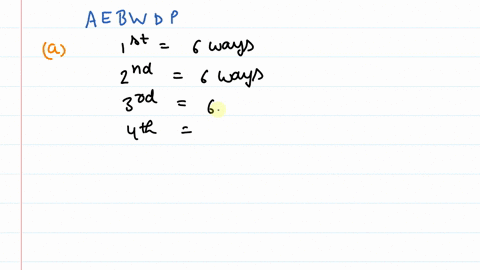 A E B W D P
(a) 1st = 6 ways
2nd = 6 ways
3rd = 6
4th =